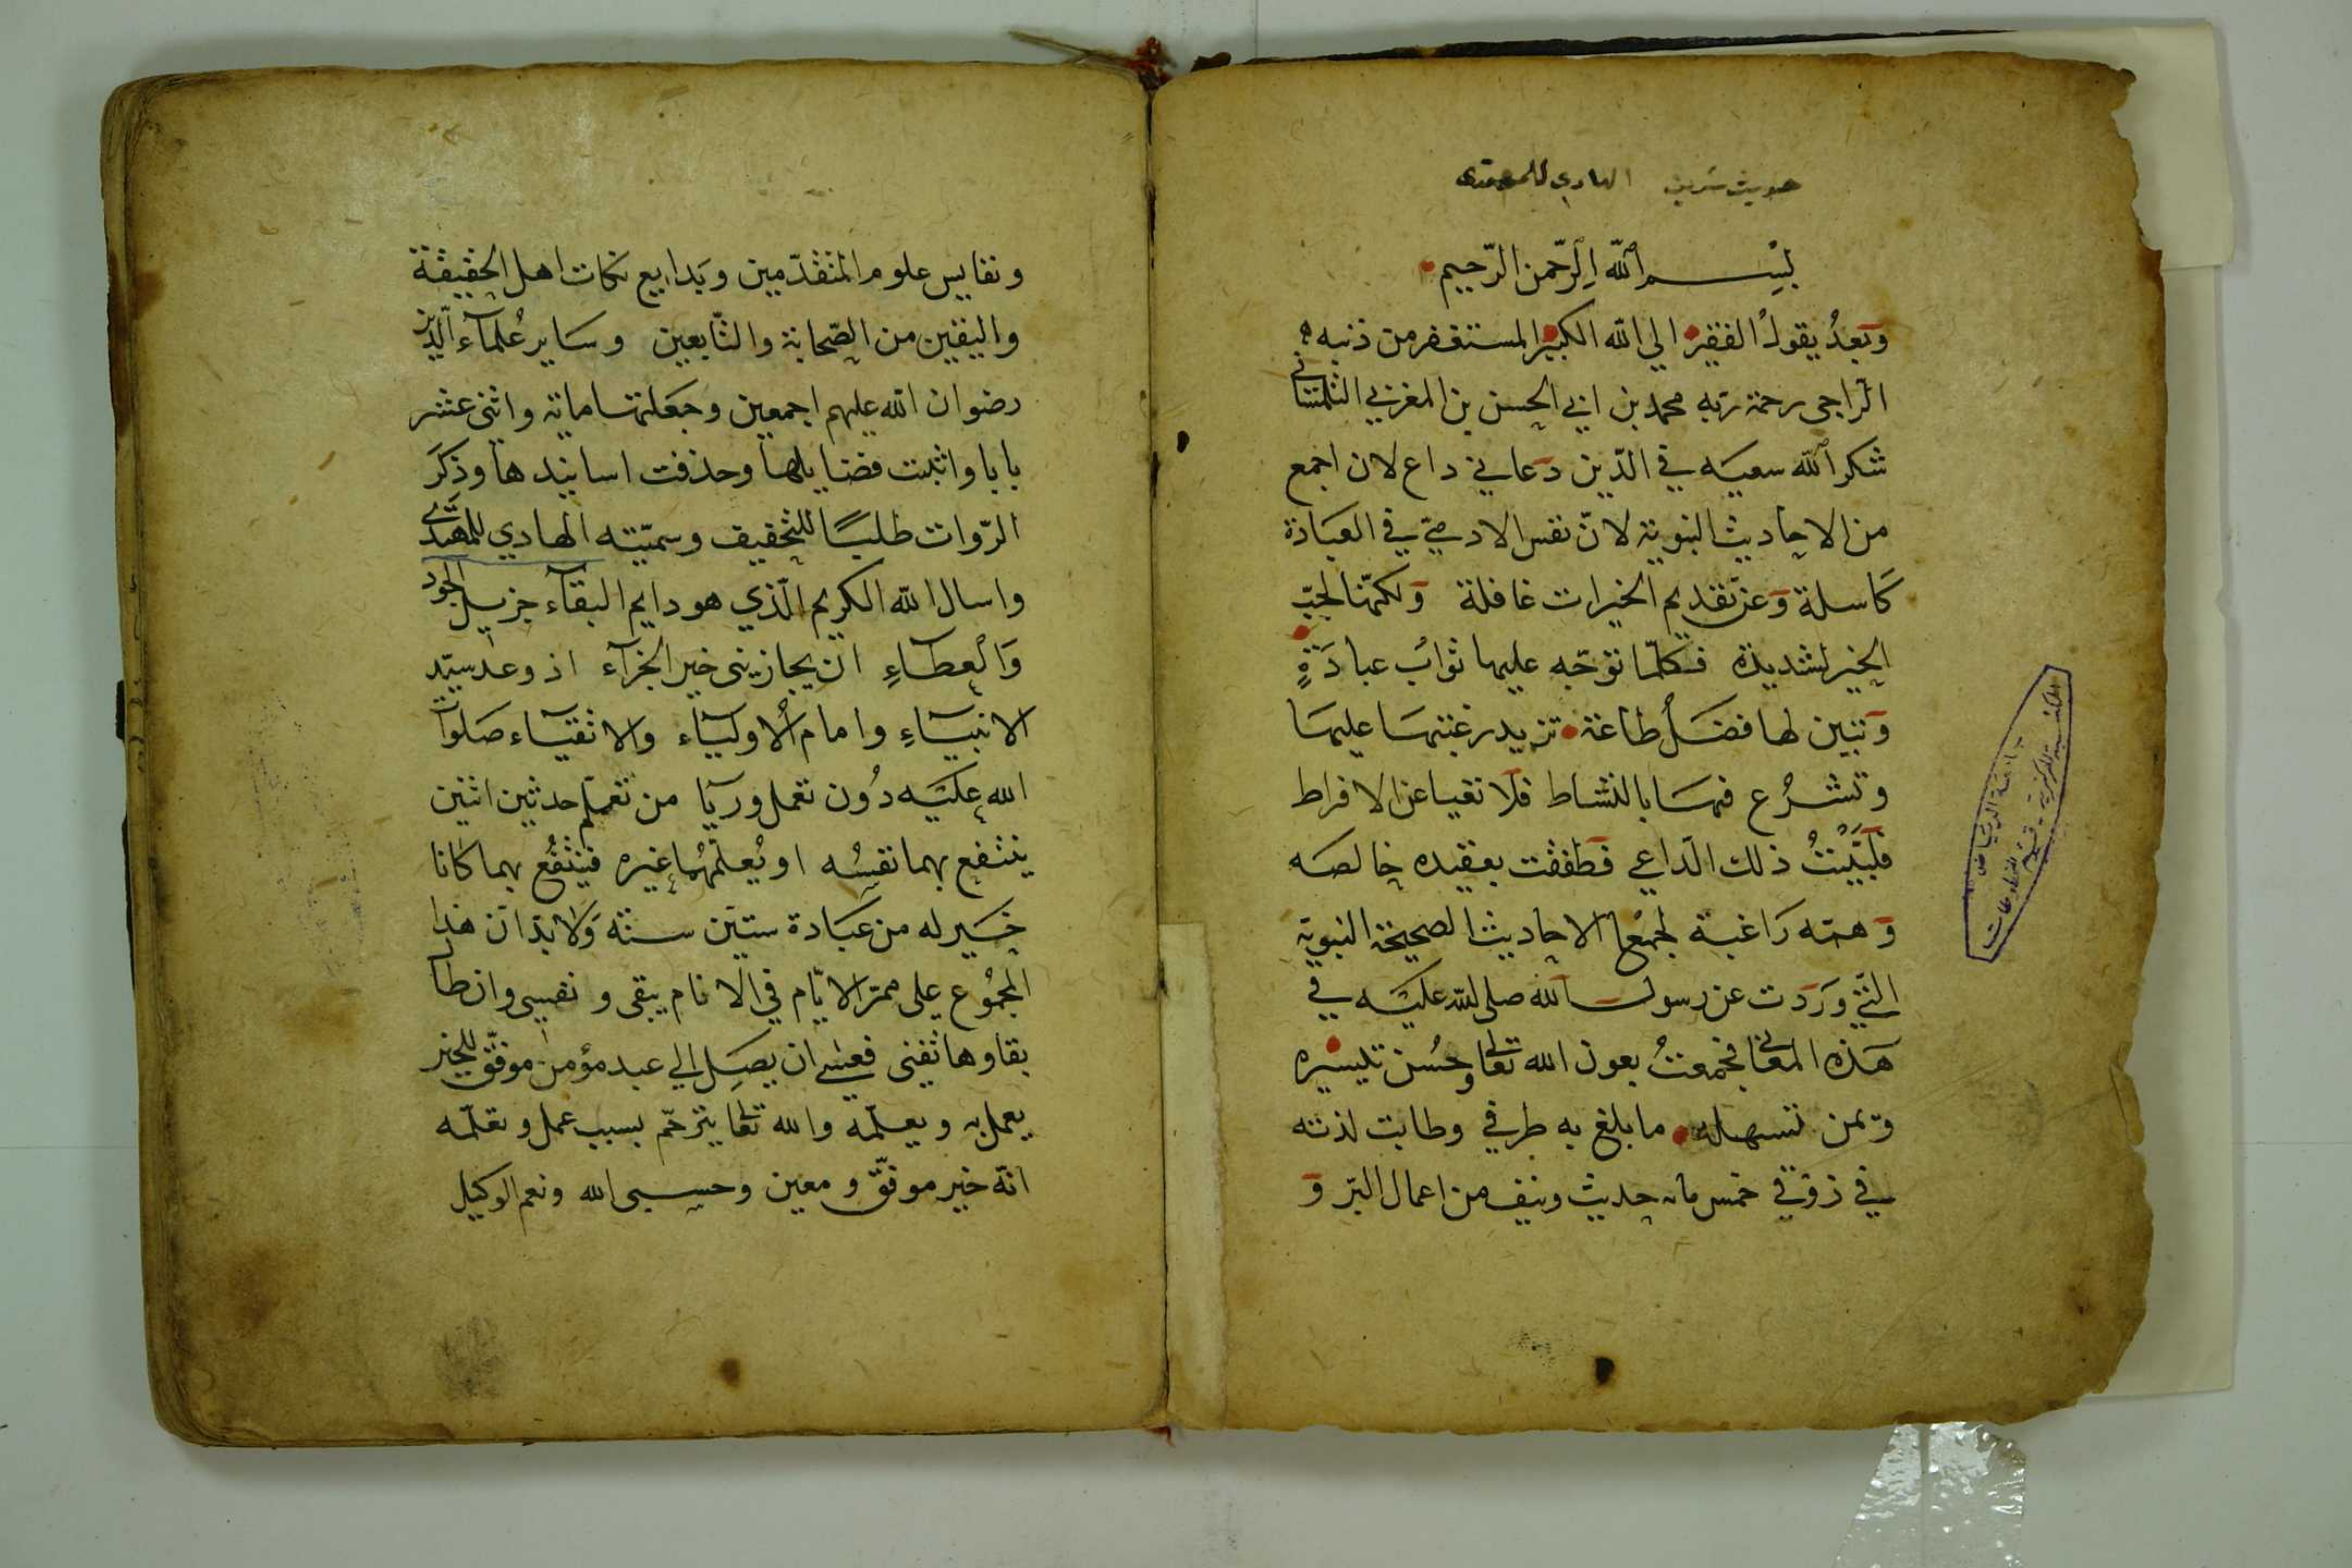 حديث شريف الهادي للمهتدى
بسم الله الرحمن الرحيم
وَبَعدُ يقولُ الفقير الي الله الكبير المستغفر من ذنبه
الرّاجى رحمة ربّه محمد بن ابي الحسن بن المغربي التلمتسانى
شكر الله سعيَه في الدّين دعاني داع لان اجمع
من الاحاديث النبوية لانّ نفس الادميّ في العبَادة
كَاسلة وَعن تقديم الخيرات غافلة وَلكنّها لحبّ
الخير لشديدة فكلّما توجّه عليها ثوابُ عبادَةٍ
وَتبين لها فضلُ طاعة تزيد رغبتهَا عليهَا
وتشرُع فيهَا بالنشاط فلا تعيا عن الافراط
فلبَّيْتُ ذلك الدّاعي فطفقت بعقيده خالصَه
وَهمّه رَاغبة لجمع الاحاديث الصحيحة النبوية
التّي وَرَدت عن رسول الله صلى الله عليَه في
هَذه المعانى فجمعتُ بعون الله تعالى وحُسن تيسيره
وَيمن تسهله ما بلغ به طرفي وطابت لذته
في ذوقي خمس مايه حديث ونيف من اعمال البرّ وَ
ونفايس علوم المتقدّمين وبَدايع نكات اهل الحقيقة
واليقين من الصّحابة والتّابعين وسَاير عُلمآء الّدين
رضوان الله عليهم اجمعين وجَعلتها ماية واثنى عشر
بابا واثبت فضايلها وحذفت اسانيدها وذِكرَ
الرّوات طلبًا للتخفيف وسمّيته الهادي للمهتدى
واسال الله الكريم الّذي هو دايم البقآء جزيل الجود
وَالعطآءِ ان يجازينى خير الجزآء اذ وعد سيّد
الانبيآءِ وامام الأوليآء والاتقيآء صَلوات
الله عليَه دُون تعمل وريآ من تعلّم حديثين اثنين
ينتفع بهما نفسُه او يُعلّمهُما غيره فينتفعُ بهما كانا
خيَر له من عبَادة ستيَن سنَة وَلا بدّ انّ هذا
المجمُوع على ممرّ الايّام في الانام يبقى ونفسى وان طال
بقاوها تفنى فعسى ان يصِل الي عبد مؤمن موفّق للخير
يعمل به ويعلّمه والله تعالى يترحّم بسبب عمل وتعلّمه
انّه خير موفّق ومعين وحسبى الله ونعم الوكيل
جامعة الرياض